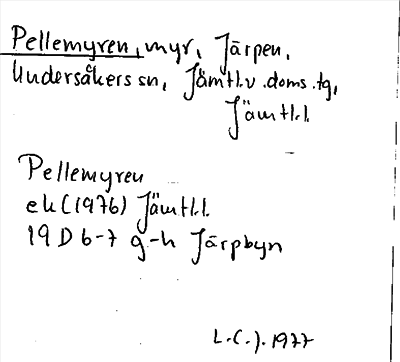 Pellemyren, myr, Järpen,
Undersåkers sn, Jämtl.v.doms.tg,
Jämtl.l.
Pellemyren
ek (1976) Jämtl.l.
19 D 6-7 g-h Järpbyn
L.C.J. 1977